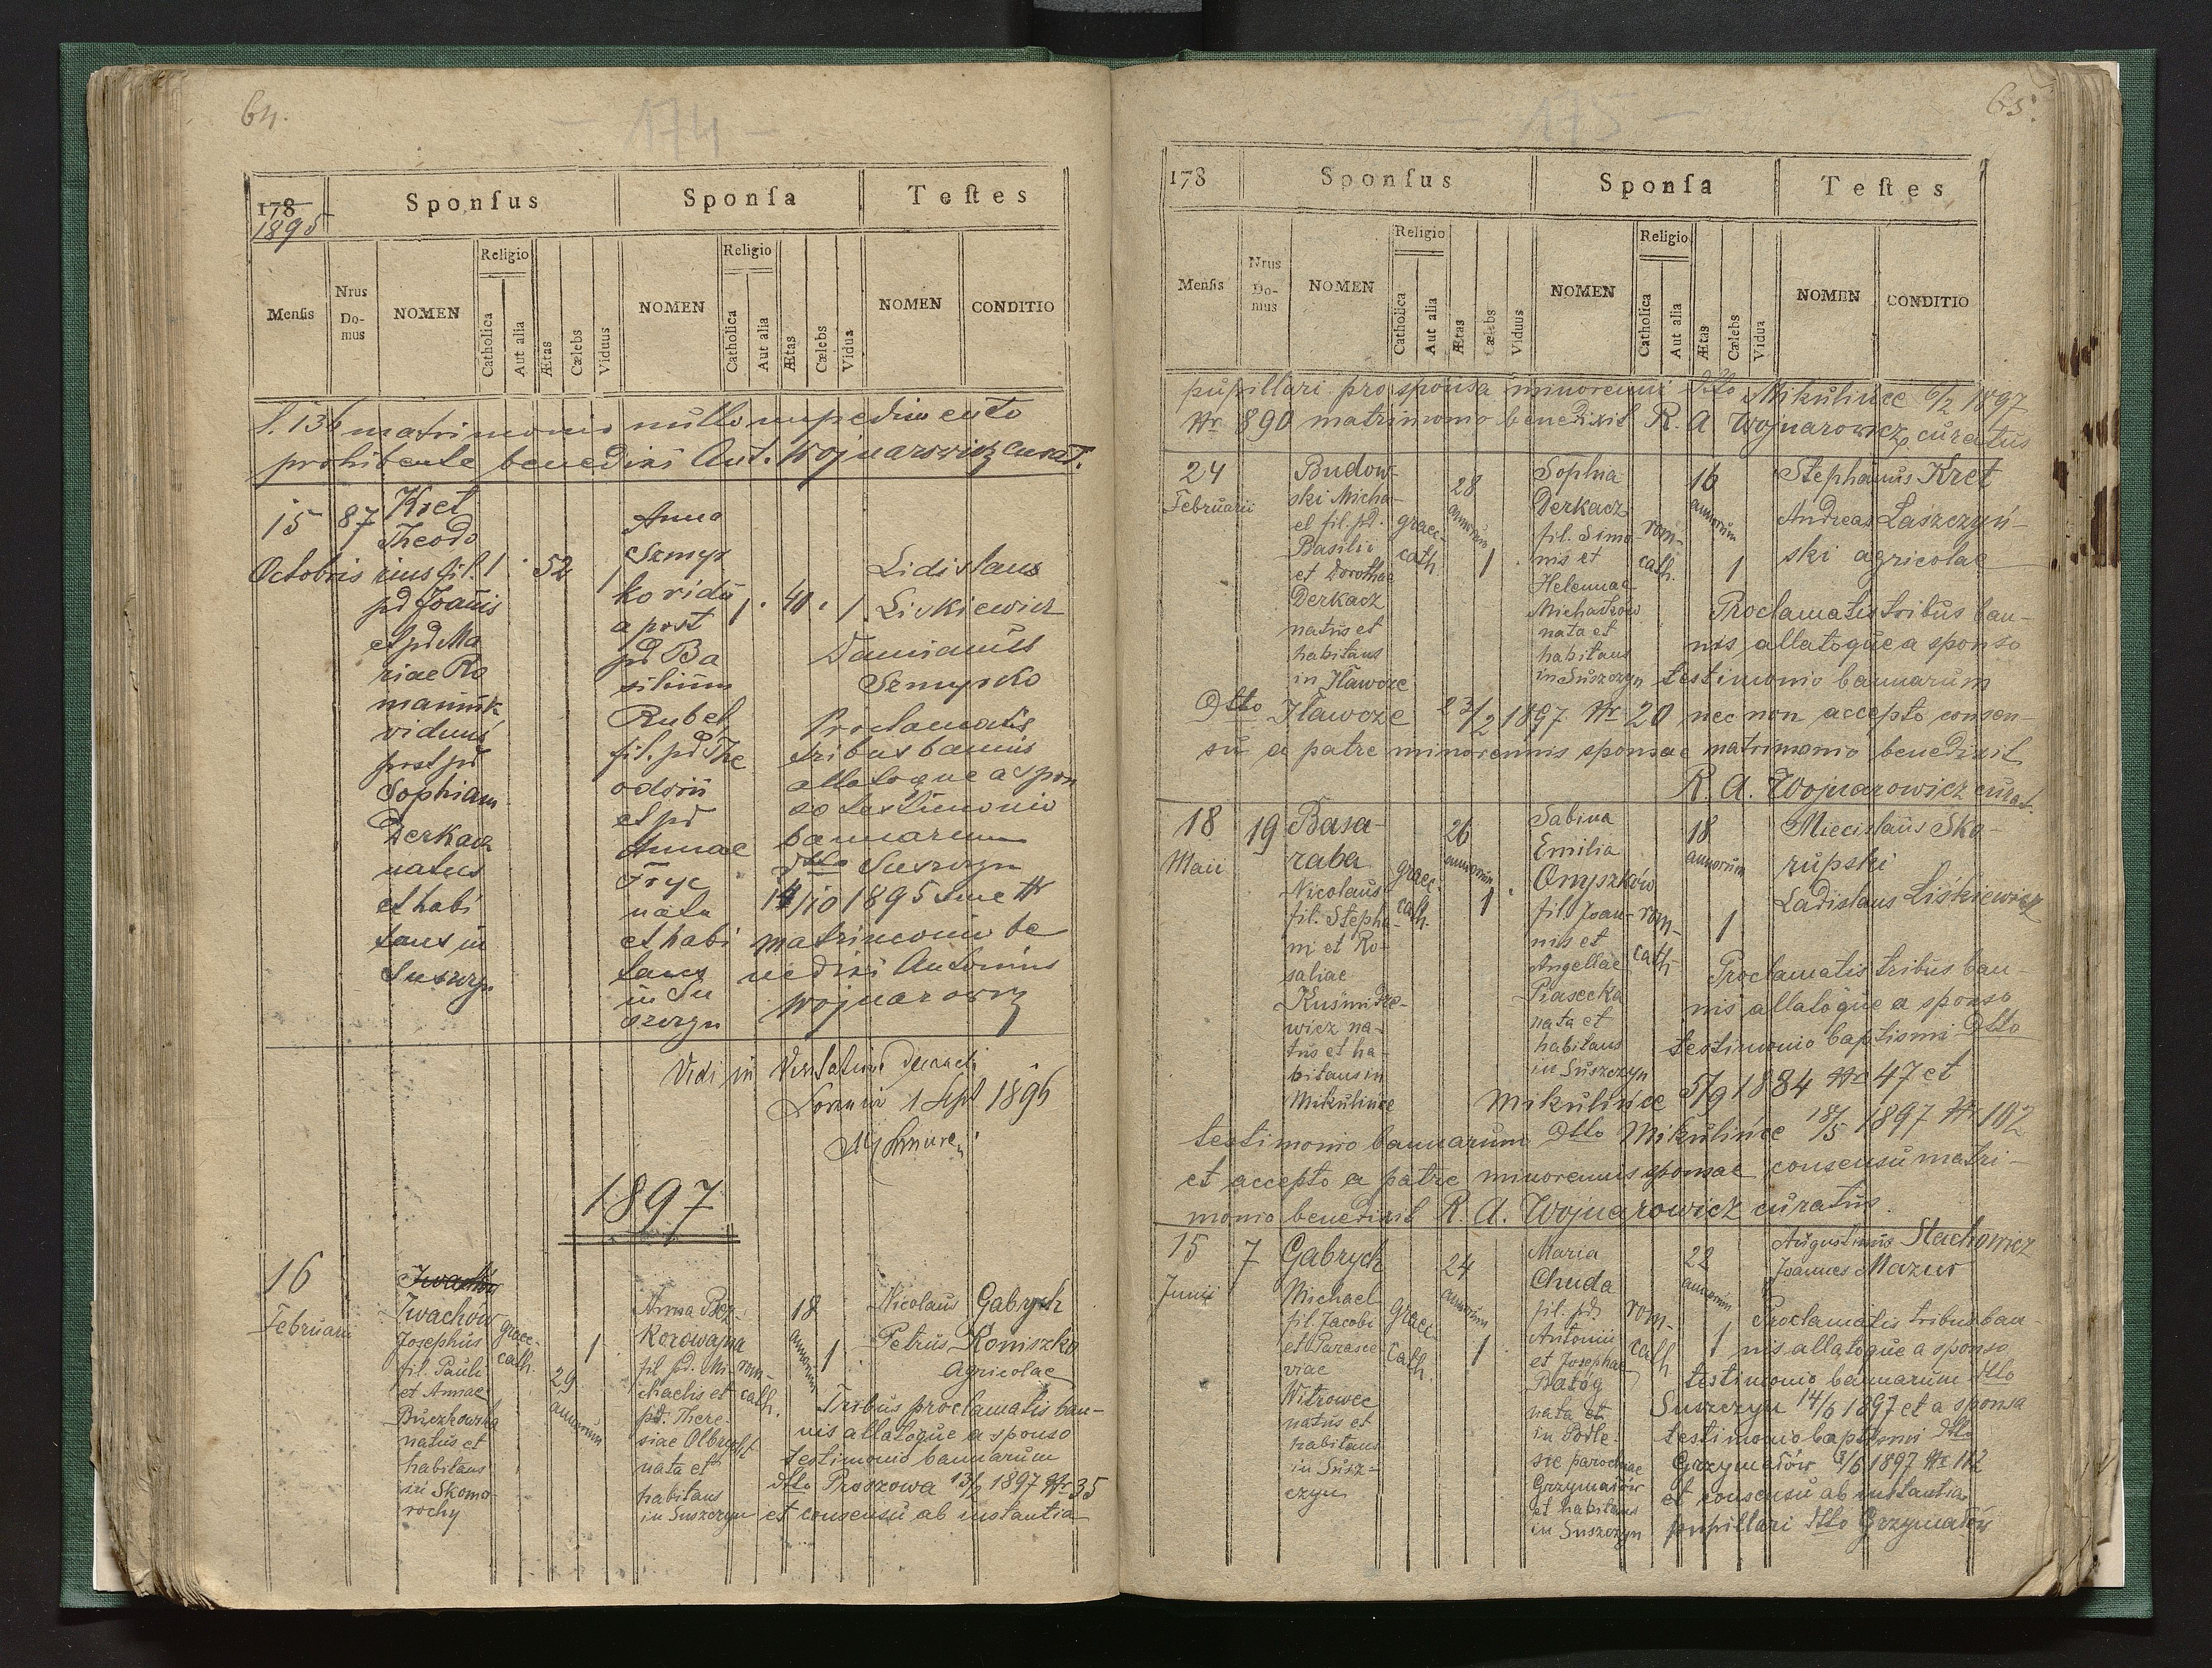 64.
- 174 -
178
1895
Sponsus
Sponsa
Testes
Mensis
Nrus Domus
NOMEN
Religio
Catholica
Aut alia
Ætas
Cælebs
Viduus
NOMEN
Religio
Catholica
Aut alia
Ætas
Cælebs
Vidua
NOMEN
CONDITIO
l. 136 matrimonio nullo impedimento
prohibente benedixi Ant. Wojnarowicz curat.
15
Octobris
87
Kret
Theodo
rius fil.
pd Joanis
et pd Ma
riae Ro
maniuk
viduus
post pd
Sophiam
Derkacz
natus
et habi
tans in
Suszczyn
1
52
1
Anna
Szmyr
ko vidu
a post
pd Ba
silium
Rubel
fil. pd The
odorii
et pd
Annae
Fryc
nata
et habi
tans
in Su
szczyn
1
40
1
Ladislaus
Liskiewicz
Damianus
Szmyrko
Proclamatis
tribus bannis
allatoque a spon
so testimonio
bannarum
dtto Suszczyn
14/10 1895 sine Nr
matrimonio be
nedixi Antonius
Wojnarowicz
Vidi in Visitatione Decanali
1 Sept 1896
1897
16
Februarii
Iwachów
Iwachów
Josephus
fil. Pauli
et Annae
Buczkowska
natus et
habitans
in Skomo-
rochy
graec-
cath.
29
annorum
1
Anna Boz-
Korowajna
fil pd. Mi-
chaelis et
pd. There-
siae Olbrycht
nata et
habitans
in Suszczyn
rom-
cath.
18
annorum
1
Nicolaus Gabrych
Petrus Koniszko
Agricolae
Tribus proclamatis ban-
nis allatoque a sponso
testimonio bannarum
dtto Proszowa 13/2 1897 Nr 35
et consensu ab instantia
65.
- 175 -
178
Sponsus
Sponsa
Testes
Mensis
Nrus Domus
NOMEN
Religio
Catholica
Aut alia
Ætas
Cælebs
Viduus
NOMEN
Religio
Catholica
Aut alia
Ætas
Cælebs
Vidua
NOMEN
CONDITIO
pupillari pro sponsa minorenni dtto Mikulince 6/2 1897
Nr 890 matrimonio benedixit R. A Wojnarowicz, curatus
24
Februarii
Budow-
ski Micha-
el fil. pd.
Basilii
et Dorothae
Derkacz
natus et
habitans
in Ilawcze
graec-
cath
28
annorum
1
Sophia
Derkacz
fil. Simo-
nis et
Helennae
Michałków
nata et
habitans
in Suszczyn
rom-
cath.
16
annorum
1
Stephanus Kret
Andreas Łaszczyń-
ski agricolae
Proclamatis tribus ban-
nis allatoque a sponso
testimonio bannarum
dtto Ilawcze 23/2 1897 Nr 20 nec non accepto consen-
su a patre minorennis sponsae matrimonio benedixit
R. A. Wojnarowicz curat.
18
Maii
19
Basa-
raba
Nicolaus
fil. Stepha-
ni et Ro-
saliae
Kuśmidro-
wicz na-
tus et ha-
bitans in
Mikulince
graec.
cath.
26
annorum
1
Sabina
Emilia
Onyszków
fil. Joan-
nis et
Angellae
Piasecka
nata et
habitans
in Suszczyn
rom-
cath
18
annorum
1
Miecislaus Sko-
rupski
Ladislaus Liśkiewicz
Proclamatis tribus ban
nis allatoque a sponso
testimonio baptismi dtto
Mikulińce 5/9 1884 Nr 47 et
testimonio bannarum dtto Mikulińce 18/5 1897 Nr 102
et accepto a patre minorennis sponsae consensu matri-
monio benedixit R. A. Wojnarowicz curatus.
15
Junii
7
Gabrych
Michael
fil. Jacobi
et Parasce
viae
Witrowec
natus et
habitans
in Susz=
czyn
graec-
cath.
24
annorum
1
Maria
Chuda
fil. pd.
Antonii
et Josephae
Batóg
nata et
in Podle-
sie parochiae
Grzymałów
et habitans
in Suszczyn
rom-
cath
22
annorum
1
Augustinus Stachowicz
Joannes Mazur
Proclamatis tribus ban-
nis allatoque a sponso
testimonio bannarum dtto
Suszczyn 14/6 1897 et a sponsa
testimonio baptismi dtto
Grzymałów 8/6 1897 Nr 112
et consensu ab instantia
pupillari dtto Grzymałów